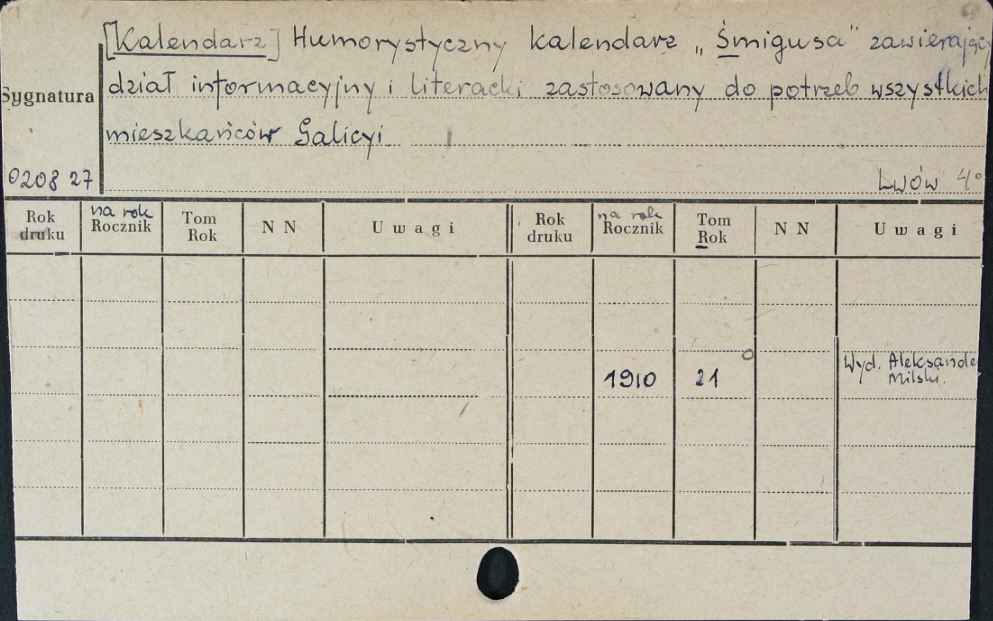 [Kalendarz] Humorystyczny kalendarz „Śmigusa" zawierający
dział informacyjny i literacki zastosowany do potrzeb wszystkich
Sygnatura
mieszkańców Galicyi
020827
Lwów 4°
Rok druku na rok Rocznik Tom Rok NN Uwagi Rok druku na rok Rocznik Tom Rok NN Uwagi
1910 21 Wyd. Aleksander
Milski.